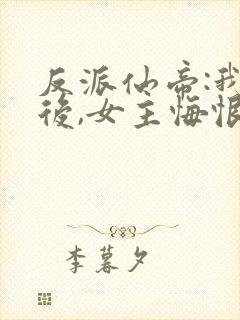 反派仙帝:我
後,女主悔恨
李暮夕